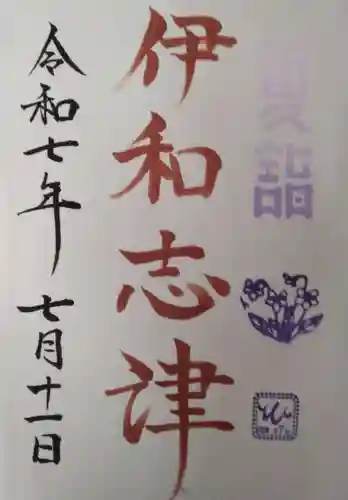 夏詣
伊和志津
令和七年 七月十一日